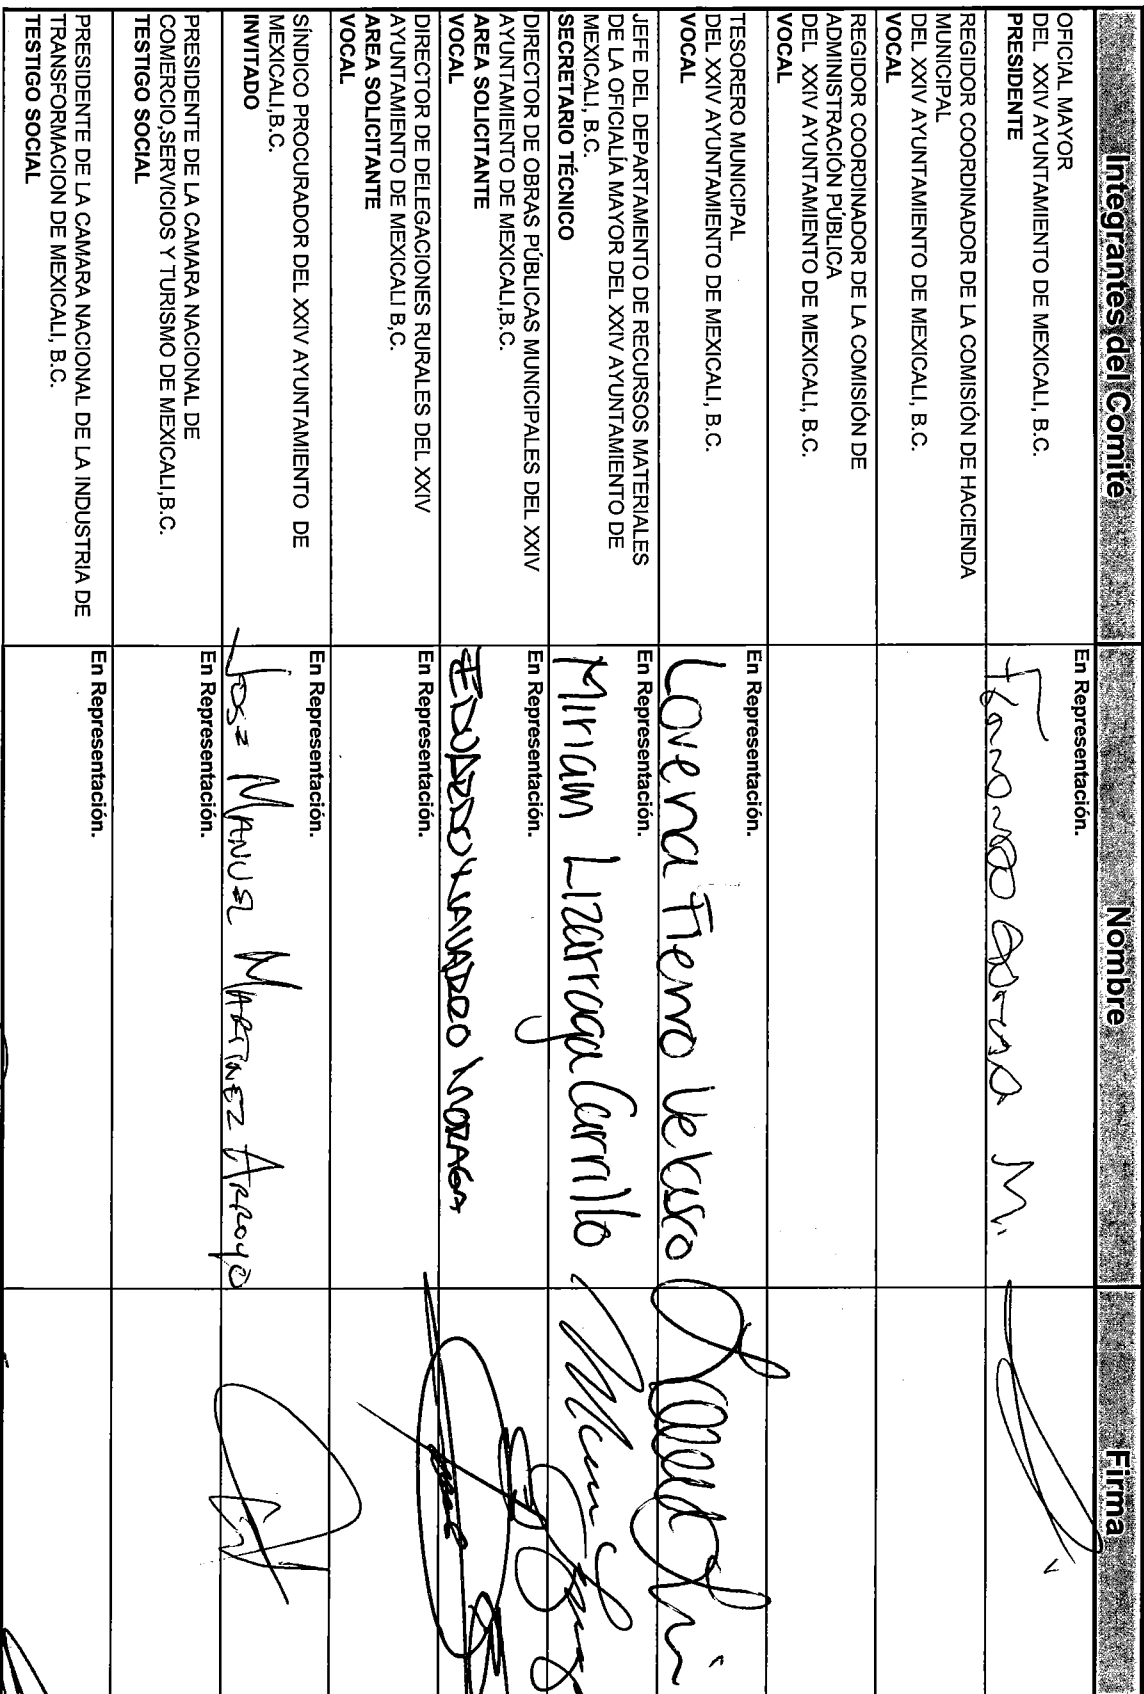 Integrantes del Comité Nombre Firma
OFICIAL MAYOR
DEL XXIV AYUNTAMIENTO DE MEXICALI, B.C.
PRESIDENTE
En Representación.
REGIDOR COORDINADOR DE LA COMISIÓN DE HACIENDA
MUNICIPAL
DEL XXIV AYUNTAMIENTO DE MEXICALI, B.C.
VOCAL
REGIDOR COORDINADOR DE LA COMISIÓN DE
ADMINISTRACIÓN PÚBLICA
DEL XXIV AYUNTAMIENTO DE MEXICALI, B.C.
VOCAL
TESORERO MUNICIPAL
DEL XXIV AYUNTAMIENTO DE MEXICALI, B.C.
VOCAL
En Representación.
Lorena Fierro Velasco
JEFE DEL DEPARTAMENTO DE RECURSOS MATERIALES
DE LA OFICIALÍA MAYOR DEL XXIV AYUNTAMIENTO DE
MEXICALI, B.C.
SECRETARIO TÉCNICO
En Representación.
Miriam Lizarraga Carrillo
DIRECTOR DE OBRAS PÚBLICAS MUNICIPALES DEL XXIV
AYUNTAMIENTO DE MEXICALI,B.C.
AREA SOLICITANTE
VOCAL
En Representación.
EDUARDO
DIRECTOR DE DELEGACIONES RURALES DEL XXIV
AYUNTAMIENTO DE MEXICALI B,C.
AREA SOLICITANTE
VOCAL
En Representación.
SÍNDICO PROCURADOR DEL XXIV AYUNTAMIENTO DE
MEXICALI,B.C.
INVITADO
En Representación.
JOSE MANUEL MARTINEZ ARROYO
PRESIDENTE DE LA CAMARA NACIONAL DE
COMERCIO,SERVICIOS Y TURISMO DE MEXICALI,B.C.
TESTIGO SOCIAL
En Representación.
PRESIDENTE DE LA CAMARA NACIONAL DE LA INDUSTRIA DE
TRANSFORMACION DE MEXICALI, B.C.
TESTIGO SOCIAL
En Representación.